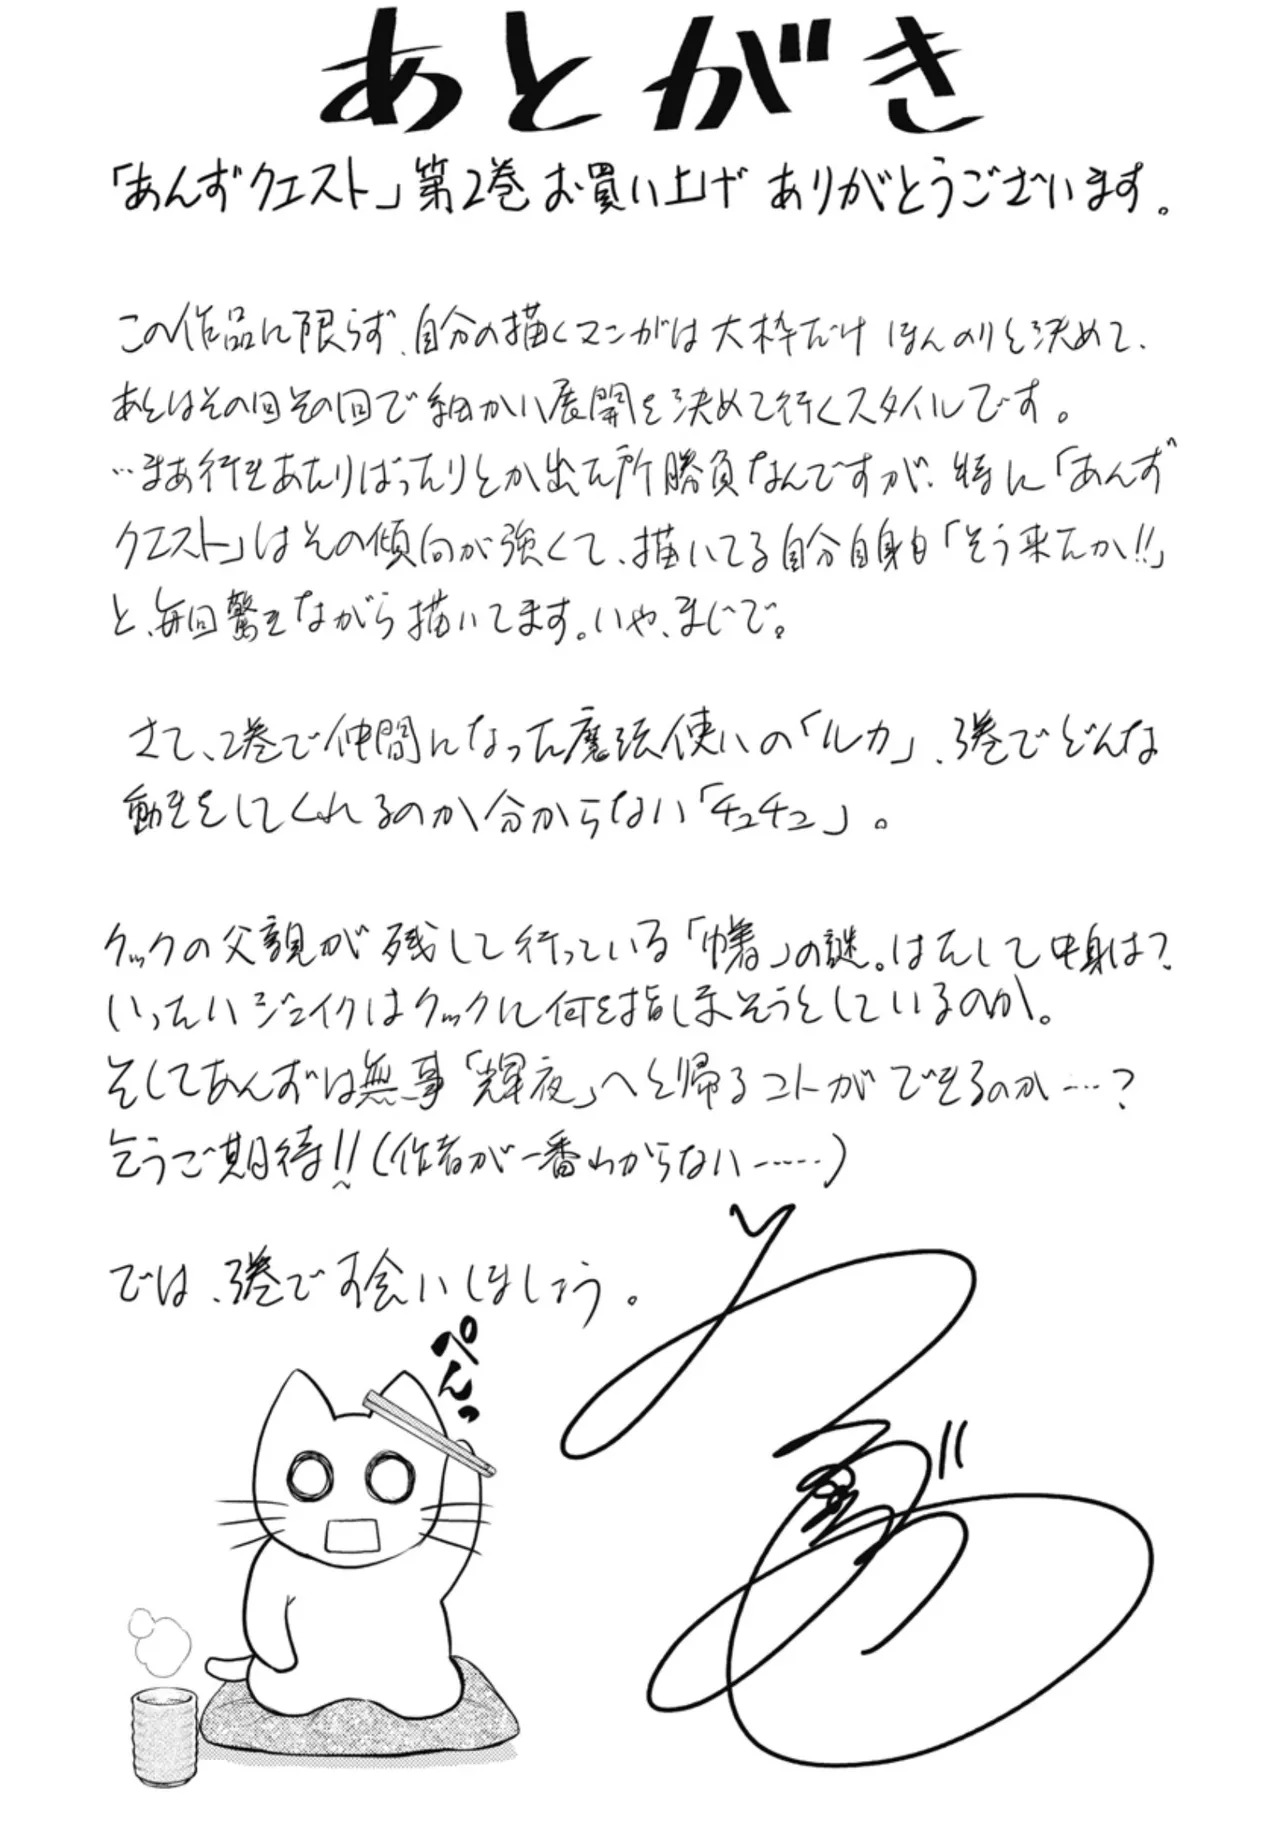 あとがき
「あんずクエスト」第2巻お買い上げ ありがとうございます。
この作品に限らず、自分の描くマンガは大枠だけ ほんのりと決めて、
あとはその回その回で細かい展開を決めて行くスタイルです。
…まあ行きあたりばったりとか出た所勝負なんですが、特に「あんず
クエスト」はその傾向が強くて、描いてる自分自身も「そう来たか!!」
と、毎回驚きながら描いてます。いや、まじで。
さて、2巻で仲間になった魔法使いの「ルカ」、3巻でどんな
動きをしてくれるのか分からない「チュチュ」。
クックの父親が残して行っている「書」の謎。はたして中身は?
いったいジェイクはクックに何を指しまそうとしているのか。
そしてあんずは無事「輝夜」へと帰るコトができるのか……?
乞うご期待!!(作者が一番わからない……)
では、3巻でお会いしましょう。
ぺんっ